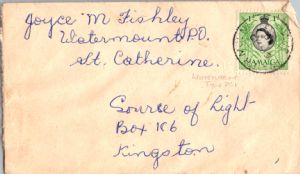 Joyce M Fishley
Watermount P.O.
St. Catherine.
JAMAICA
Source of Light
Box 186
Kingston